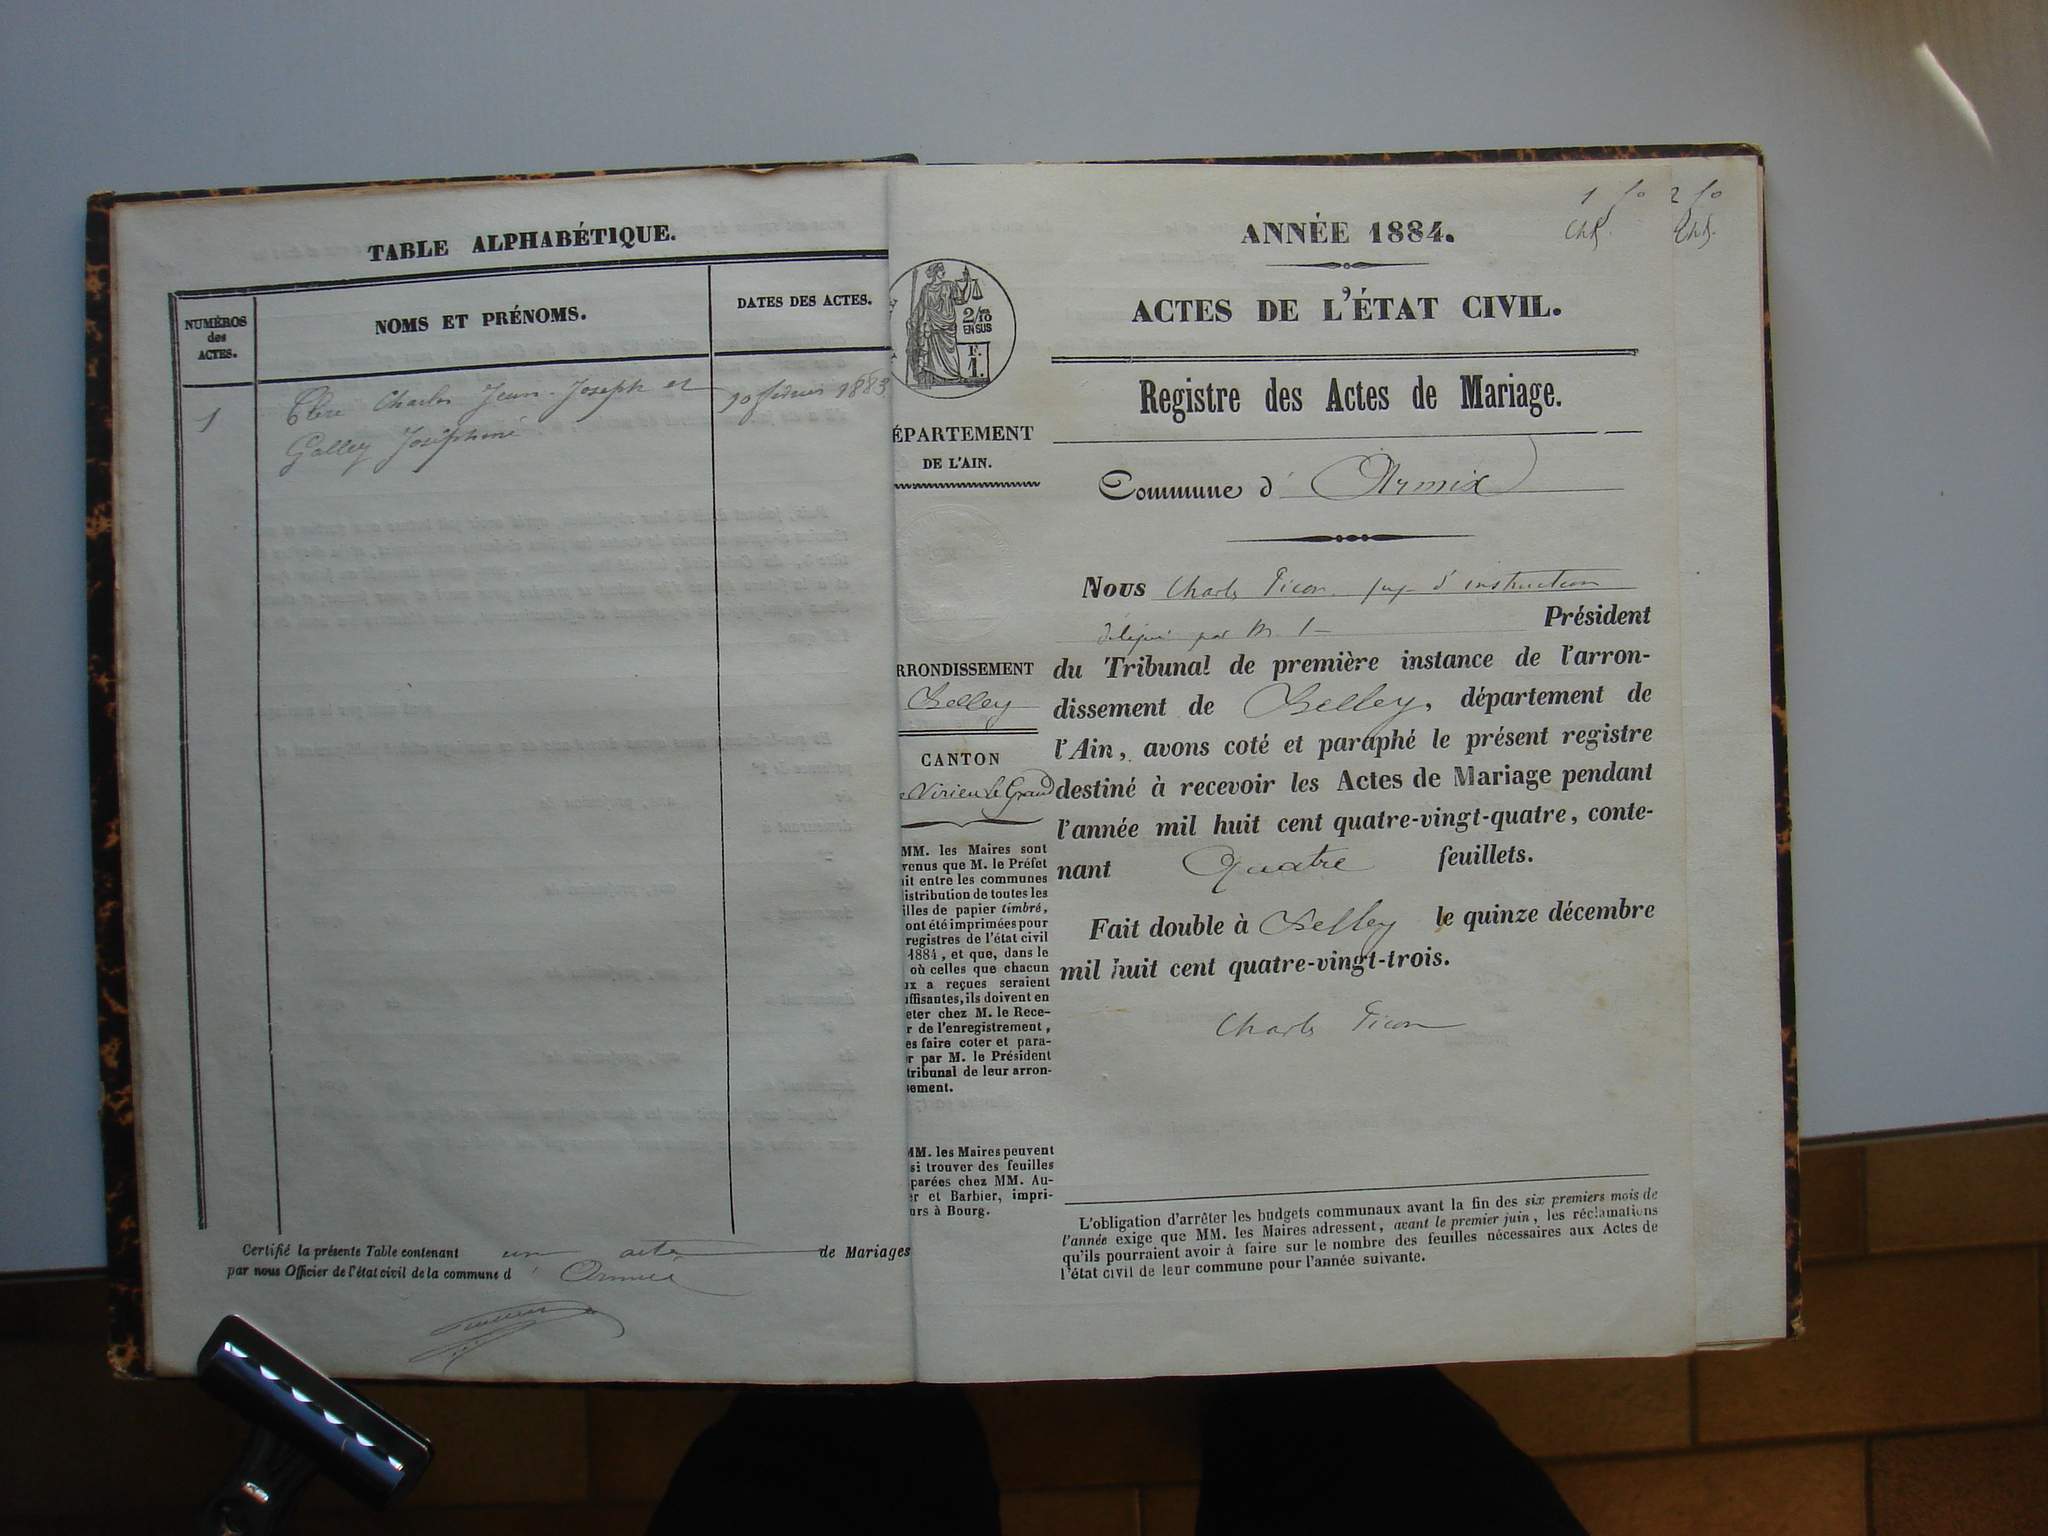 TABLE ALPHABÉTIQUE.
NUMÉROS
des
ACTES.
NOMS ET PRÉNOMS.
DATES DES ACTES.
1
Charles Jean-Joseph et
10 février 1883
Golley Joséphine
Certifié la présente Table contenant un acte de Mariages
par nous Officier de l'état civil de la commune d'Armix
1 fo 2 fo
ChP. ChP.
ANNÉE 1884.
ACTES DE L'ÉTAT CIVIL.
Registre des Actes de Mariage.
Commune d'Armix
2/10
EN SUS
F.
1.
ÉPARTEMENT
DE L'AIN.
RRONDISSEMENT
Belley
CANTON
Virieu le Grand
MM. les Maires sont
venus que M. le Préfet
it entre les communes
istribution de toutes les
illes de papier timbré,
ont été imprimées pour
registres de l'état civil
1884, et que, dans le
où celles que chacun
ux a reçues seraient
uffisantes, ils doivent en
eter chez M. le Rece-
r de l'enregistrement,
es faire coter et para-
r par M. le Président
tribunal de leur arron-
sement.
MM. les Maires peuvent
si trouver des feuilles
parées chez MM. Au-
er et Barbier, impri-
urs à Bourg.
Nous Charles Picon juge d'instruction
délégué par M. le Président
du Tribunal de première instance de l'arron-
dissement de Belley, département de
l'Ain, avons coté et paraphé le présent registre
destiné à recevoir les Actes de Mariage pendant
l'année mil huit cent quatre-vingt-quatre, conte-
nant Quatre feuillets.
Fait double à Belley le quinze décembre
mil huit cent quatre-vingt-trois.
Charles Picon
L'obligation d'arrêter les budgets communaux avant la fin des six premiers mois de
l'année exige que MM. les Maires adressent, avant le premier juin, les réclamations
qu'ils pourraient avoir à faire sur le nombre des feuilles nécessaires aux Actes de
l'état civil de leur commune pour l'année suivante.